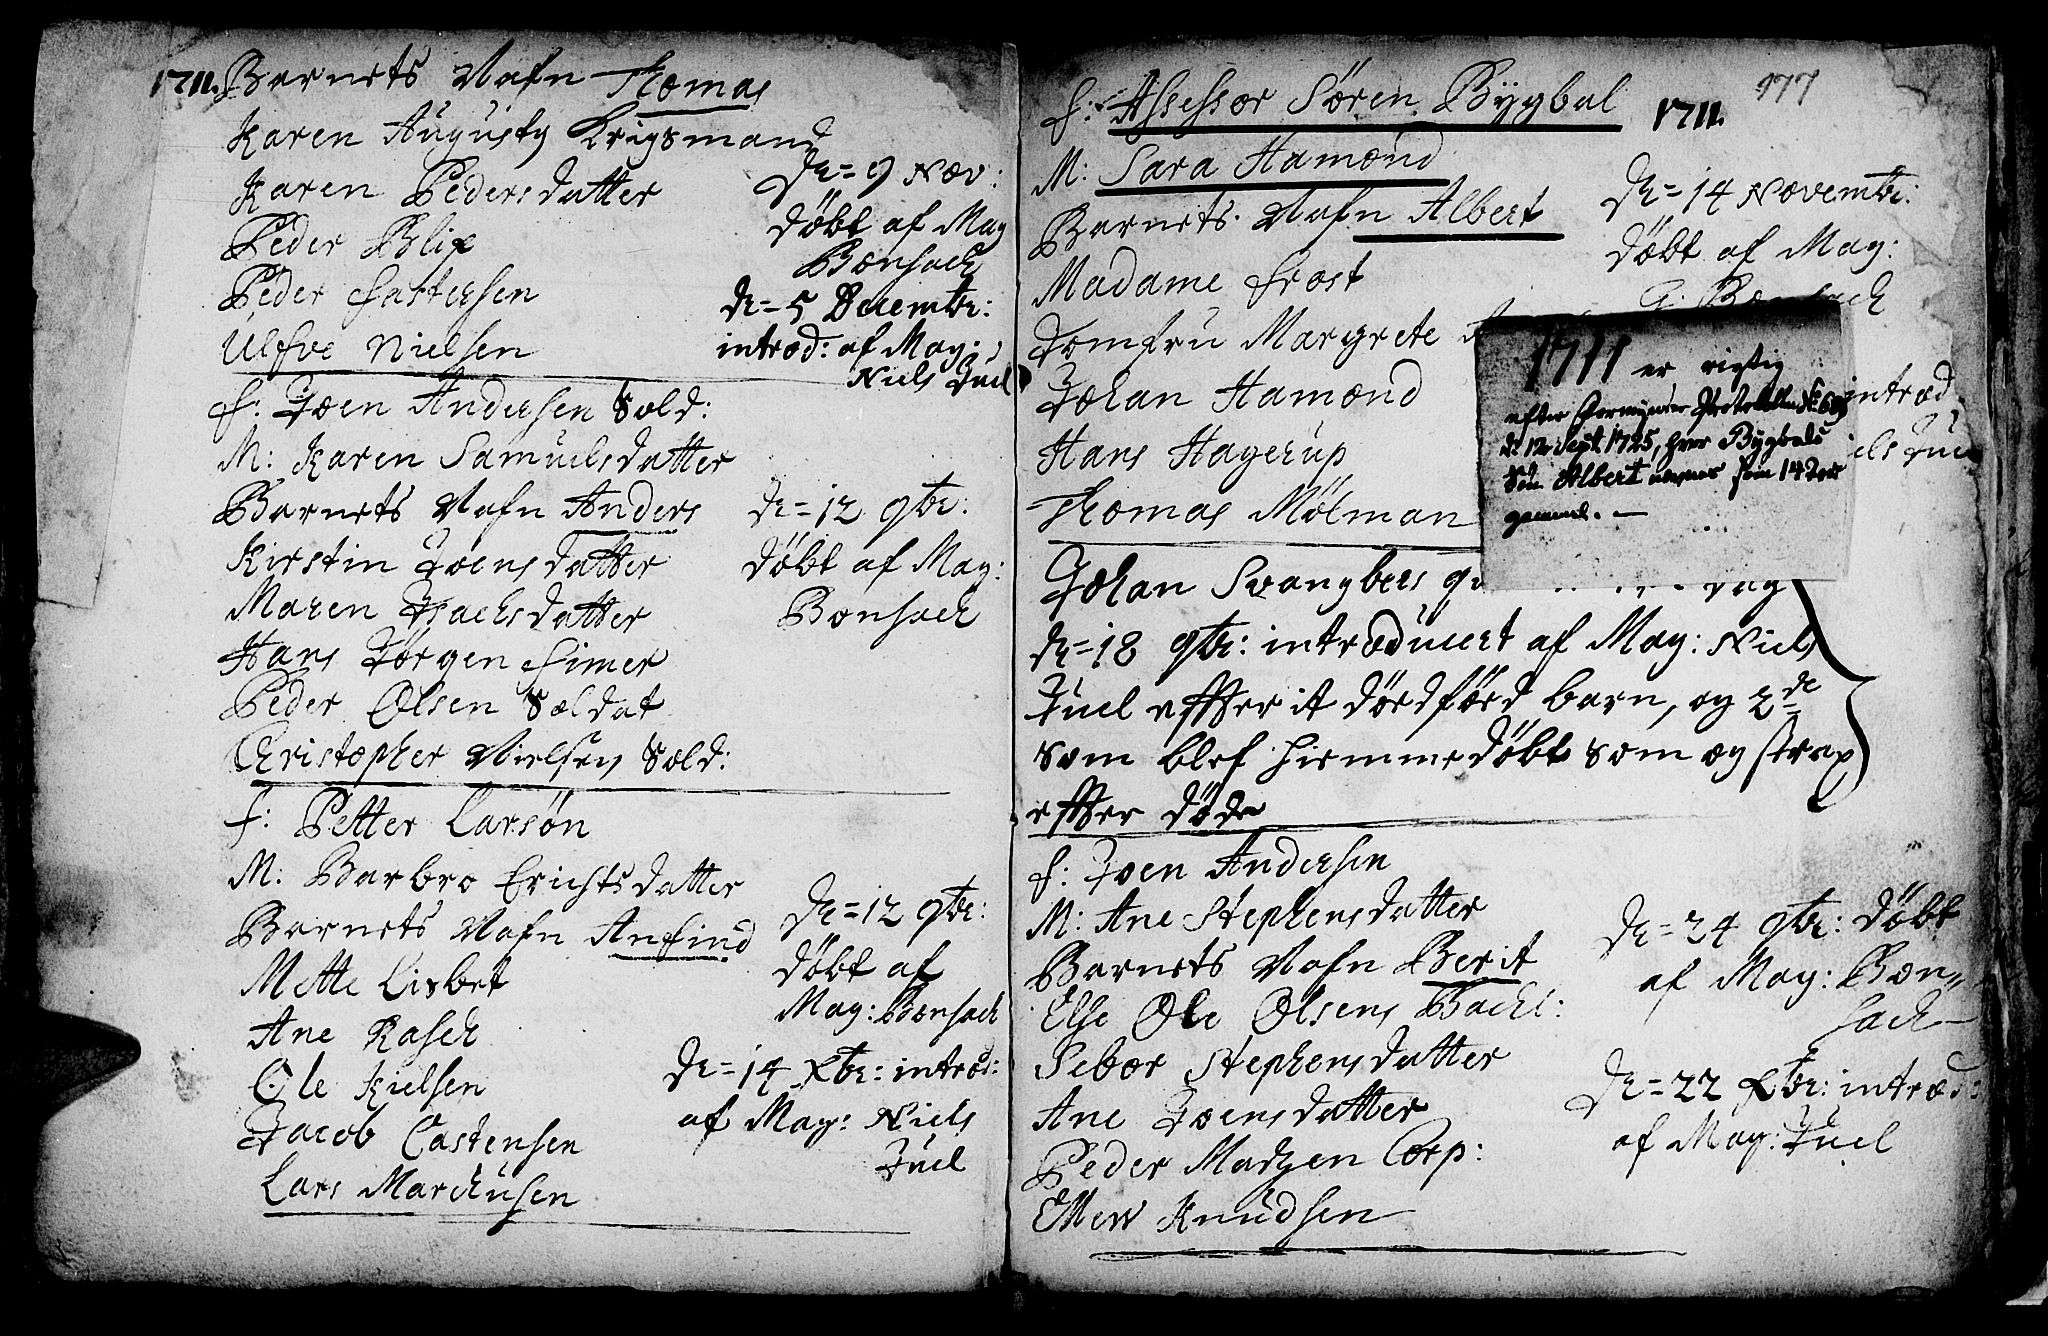 1711.
Barnets Nafn Thomas
Karen Augusty Krigsmand
Karen Pedersdatter
Peder Blix
Peder Castensen
Ulfve Nielsen
De= 9 Nov:
döbt af Mag
Bonsach
De= 5 Decembr:
introd: af Mag:
Niels Juel
f: Joen Andersen Sold:
M: Karen Samuelsdatter
Barnets Nafn Anders
Kirstin Joensdatter
Maren Isachsdatter
Hans Jörgen Simer
Peder Olsen Soldat
Christopher Nielsen Sold:
De= 12 9br:
döbt af Mag:
Bonsach
f: Petter Larsön
M: Barbro Erichsdatter
Barnets Nafn Anfind
Mette Lisbet
Ane Rasch
Ole Kielsen
Jacob Castensen
Lars Marchusen
De= 12 9br:
döbt af
Mag: Bonsach
De= 14 Xbr: introd:
af Mag: Niels
Juel
977
1711.
f: Assessor Sören Bygbal
M: Sara Hamond
Barnets Nafn Albert
Madame Frost
Jomfru Margrete
Johan Hamond
Hans Hagerup
Thomas Mölman
De= 14 Novembr:
döbt af Mag:
G: Bonsach
introd
iels Juel
1711 er rigtig
efter Formynder Protokollen No
de 12 Sept. 1725, hvor Bygbals
Sön Albert nævnes som 14 Aar
gammel. —
Johan Svangbers
de= 18 9br: introducert af Mag: Niels
Juel effter it dödföed barn, og 2de
som blef hiemmedöbt som og strax
effter döde
f: Joen Andersen
M: Ane Stephensdatter
Barnets Nafn Berit
Else Ole Olsens Bachl:
Sebor Stephensdatter
Ane Joensdatter
Peder Madzen Corp:
Ellew Knudsen
De= 24 9br: döbt
af Mag: Bon„
sach
De= 22 Xbr: introd:
af Mag: Juel